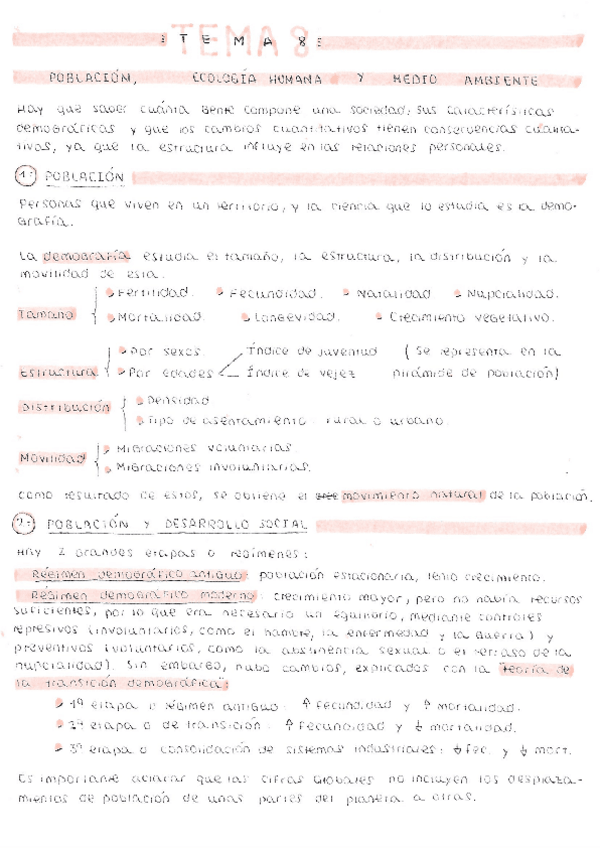 TEMA 8
: T E M A 8 :
POBLACIÓN, ECOLOGÍA HUMANA Y MEDIO AMBIENTE
Hay que saber cuánta gente compone una sociedad, sus características
demográficas y que los cambios cuantitativos tienen consecuencias cualita-
tivas, ya que la estructura influye en las relaciones personales.
1: POBLACIÓN
Personas que viven en un territorio, y la ciencia que lo estudia es la demo-
grafía.
La demografía estudia el tamaño, la estructura, la distribución y la
movilidad de esta.
Tamaño { Fertilidad. Fecundidad. Natalidad. Nupcialidad.
Mortalidad. Longevidad. Crecimiento vegetativo.
Estructura { Por sexos. Índice de juventud (Se representa en la
Por edades Índice de vejez pirámide de población)
Distribución { Densidad
Tipo de asentamiento: rural o urbano.
Movilidad { Migraciones voluntarias.
Migraciones involuntarias.
Como resultado de estos, se obtiene el movimiento natural de la población.
2: POBLACIÓN Y DESARROLLO SOCIAL
Hay 2 grandes etapas o regímenes:
Régimen demográfico antiguo: población estacionaria, lento crecimiento.
Régimen demográfico moderno: crecimiento mayor, pero no había recursos
suficientes, por lo que era necesario un equilibrio, mediante controles
represivos (involuntarios, como el hambre, la enfermedad y la guerra) y
preventivos (voluntarios, como la abstinencia sexual o el retraso de la
nupcialidad). Sin embargo, hubo cambios, explicados con la "teoría de
la transición demográfica":
1ª etapa o régimen antiguo: ↑ fecundidad y ↑ mortalidad.
2ª etapa o de transición: ↑ fecundidad y ↓ mortalidad.
3ª etapa o consolidación de sistemas industriales: ↓ fec. y ↓ mort.
Es importante aclarar que las cifras globales no incluyen los desplaza-
mientos de población de unas partes del planeta a otras.